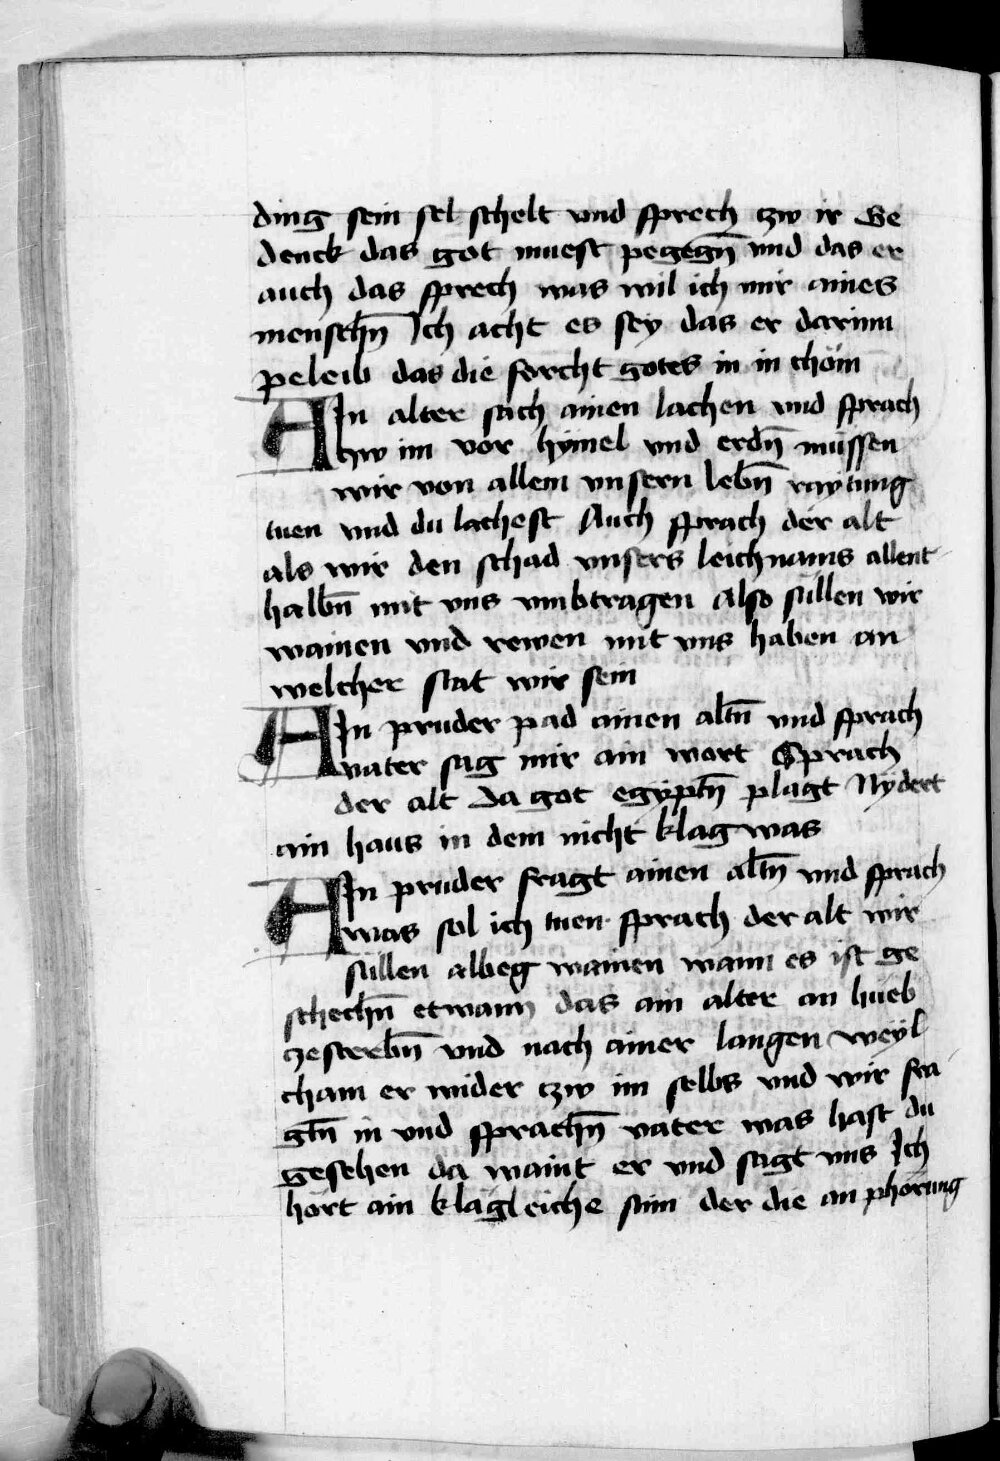 ding sein sel schelt vnd sprech tzw ir Ge
denck das got muest pegegn̄ vnd das er
auch das sprech was wil ich mir aines
menschn̄ Ich acht es sey das er darinn
peleib das die forcht gotes in in chöm
AIn alter sach ainen lachen vnd sprach
tzw im vor hymel vnd erdn̄ müssen
wir von allem vnsern lebn̄ raytung
tuen vnd du lachest Auch sprach der alt
als wir den schad vnsers leichnams allent
halbn̄ mit vns vmbtragen also süllen wir
wainen vnd rewen mit vns haben an
welcher stat wir sein
AIn pruder pad ainen altn̄ vnd sprach
vater sag mir ain wort Sprach
der alt da got egyptn̄ plagt Nydert
ain haus in dem nicht klag was
AIn pruder fragt ainen altn̄ vnd sprach
was sol ich tuen sprach der alt wir
süllen albeg wainen wann es ist ge
schechn̄ etwann das ain alter an hueb
zesterbn̄ vnd nach ainer langen weyl
cham er wider tzw im selbs vnd wir fra
gtn̄ in vnd sprachn̄ vater was hast du
gesehen da waint er vnd sagt vns Ich
hört ain klägleiche stim der die an phorung